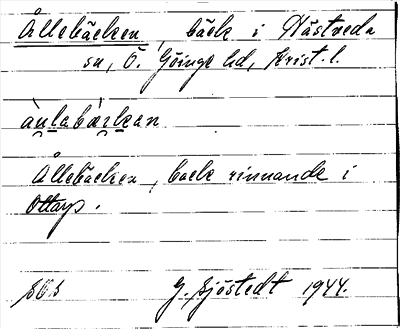 Ållebäcken, bäck i Nästveda
sn, Ö. Göinge hd, Krist. l.
àulabæ̀rkan
Ållebäcken, baek rinnande i
Ottarp.
G. Sjöstedt 1944.